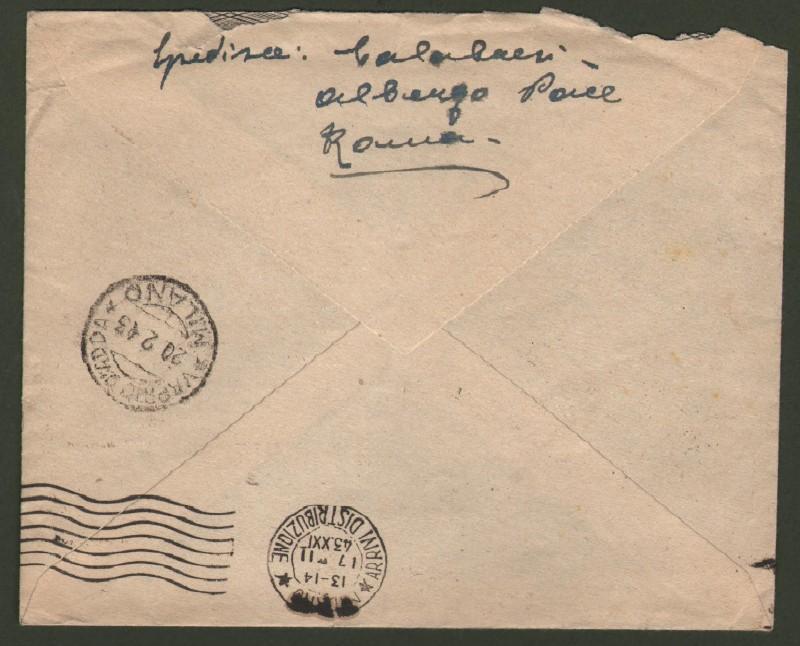 Spedisce: Calabresi -
Albergo Pace
Roma -
VAPRIO D'ADDA
20.2.43
* MILANO *
ARRIVI DISTRIBUZIONE
13-14
17 II
43.XXI